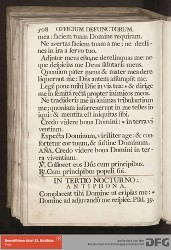 308 OFFICIUM DEFUNCTORUM.
mea: faciem tuam Domine requiram.
Ne avertas faciem tuam a me: ne decli-
nes in ira a servo tuo.
Adjutor meus esto, ne derelinquas me ne-
que despicias me Deus salutaris meus.
Quoniam pater meus & mater mea dere-
liquerunt me: Dñs autem assumpsit me.
Legem pone mihi Dñe in via tua: & dirige
me in semitâ rectâ propter inimicos meos.
Ne tradideris me in animas tribulantium
me: quoniam insurrexerunt in me testes in-
iqui: & mentita est iniquitas sibi.
Credo videre bona Domini: in terra vi-
ventium.
Expecta Dominum, viriliter age: & con-
fortetur cor tuum, & sustine Dominum.
AÑA. Credo videre bona Domini in ter-
ra viventium.
℣. Collocet eos Dñs cum principibus.
℟. Cum principibus populi sui.
IN TERTIO NOCTURNO:
ANTIPHONA.
Complaceat tibi Domine ut eripias me:
Domine ad adjuvandū me respice. Psal. 39.